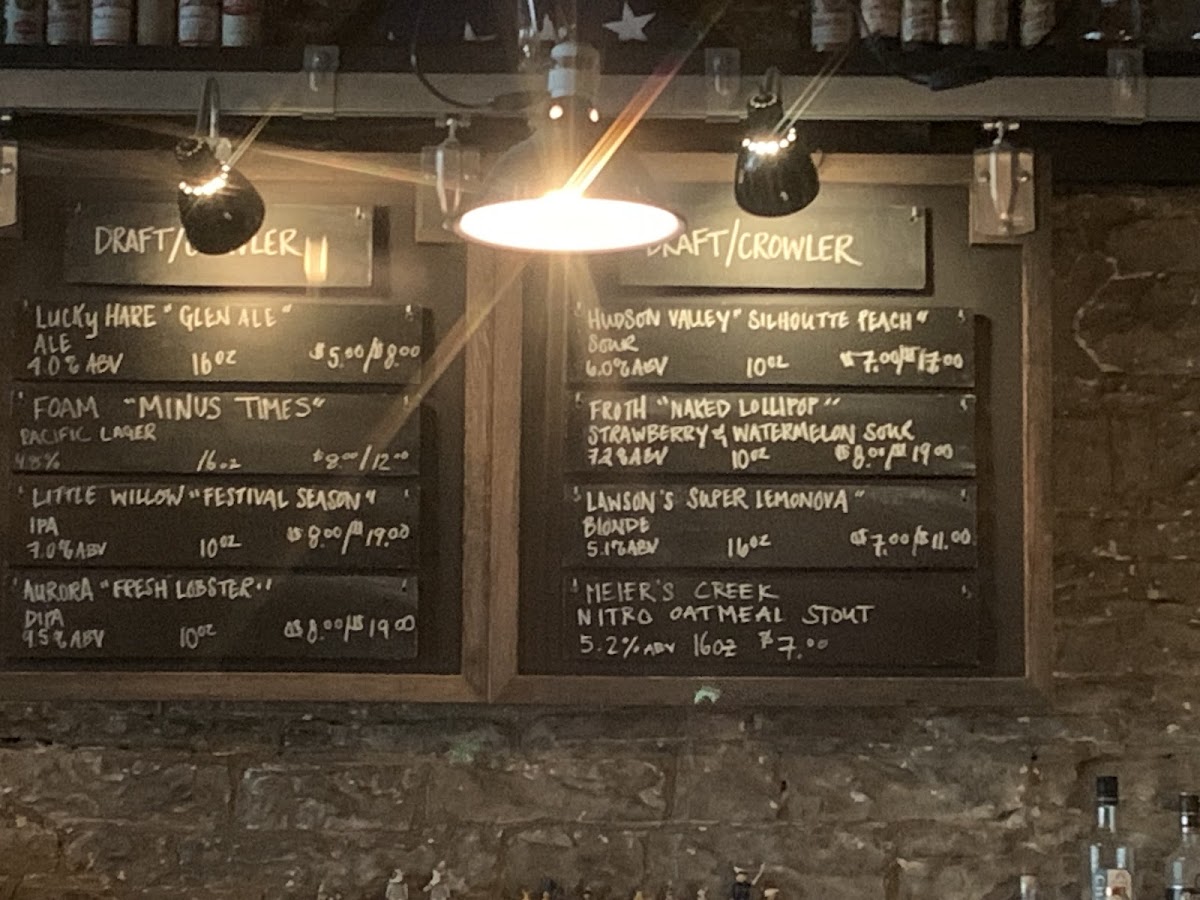 DRAFT/CROWLER
LUCKY HARE "GLEN ALE"
ALE
4.0% ABV 16oz $5.00/$8.00
FOAM "MINUS TIMES"
PACIFIC LAGER
4.8% 16oz $8.00/12.00
LITTLE WILLOW "FESTIVAL SEASON"
IPA
7.0% ABV 10oz $8.00/$19.00
AURORA "FRESH LOBSTER"
DIPA
9.5% ABV 10oz $8.00/$19.00
DRAFT/CROWLER
HUDSON VALLEY "SILHOUTTE PEACH"
SOUR
6.0% ABV 10oz $7.00/$17.00
FROTH "NAKED LOLLIPOP"
STRAWBERRY & WATERMELON SOUR
7.2% ABV 10oz $8.00/$19.00
LAWSON'S SUPER LEMONOVA"
BLONDE
5.1% ABV 16oz $7.00/$11.00
MEIER'S CREEK
NITRO OATMEAL STOUT
5.2% ABV 16oz $7.00